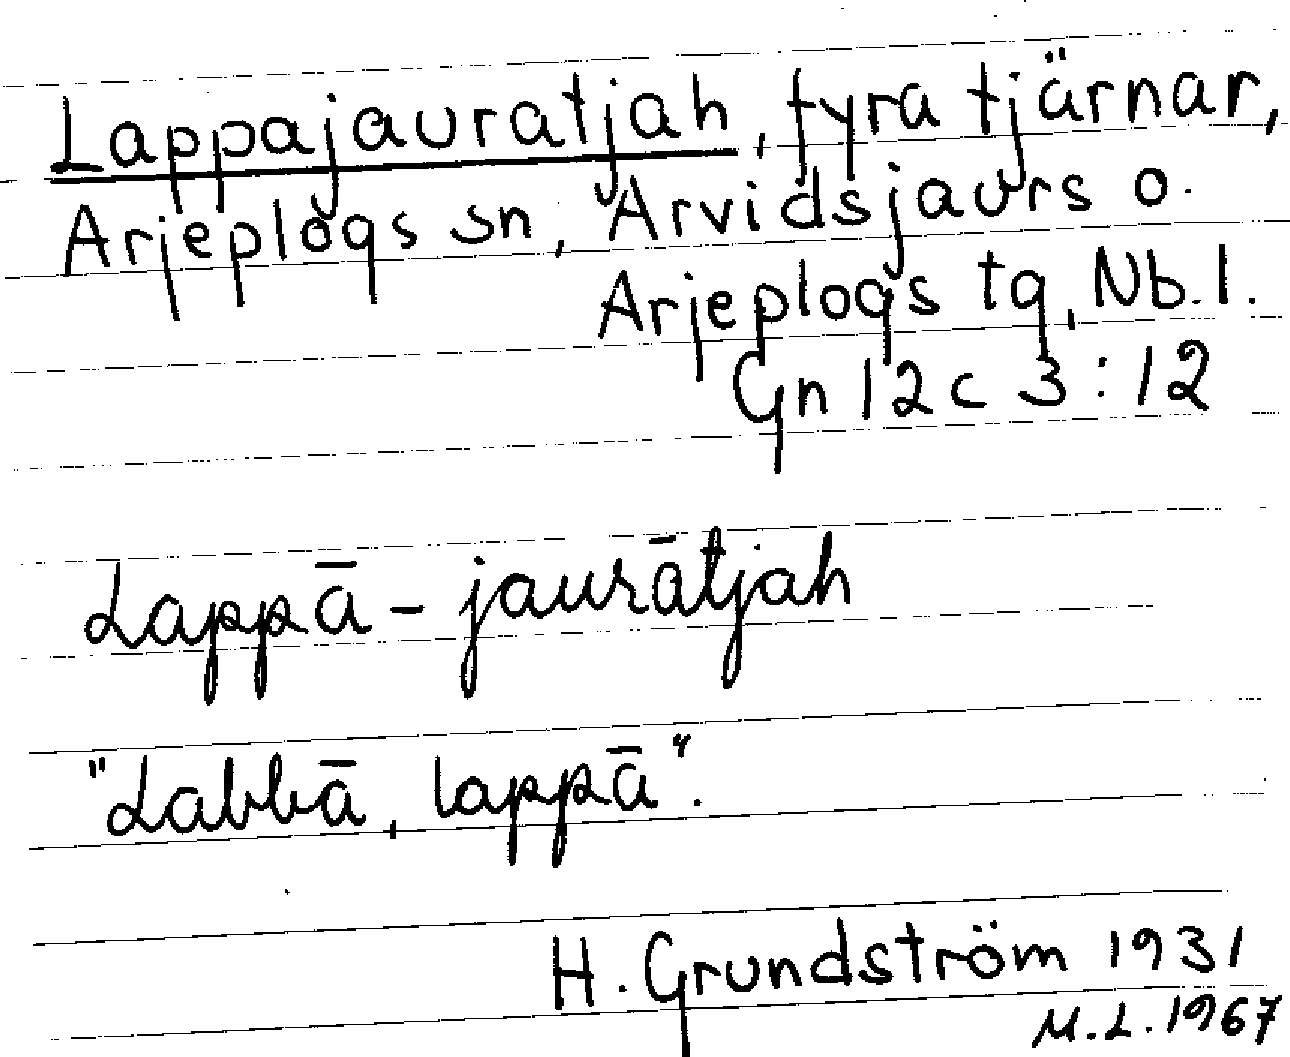 Lappajauratjah, fyra tjärnar,
Arjeplogs sn, Arvidsjaurs o.
Arjeplogs tg, Nb. l.
Gn 12c 3:12
Lappā-jaurātjah
"Labbā, lappā".
H. Grundström 1931
M.L. 1967